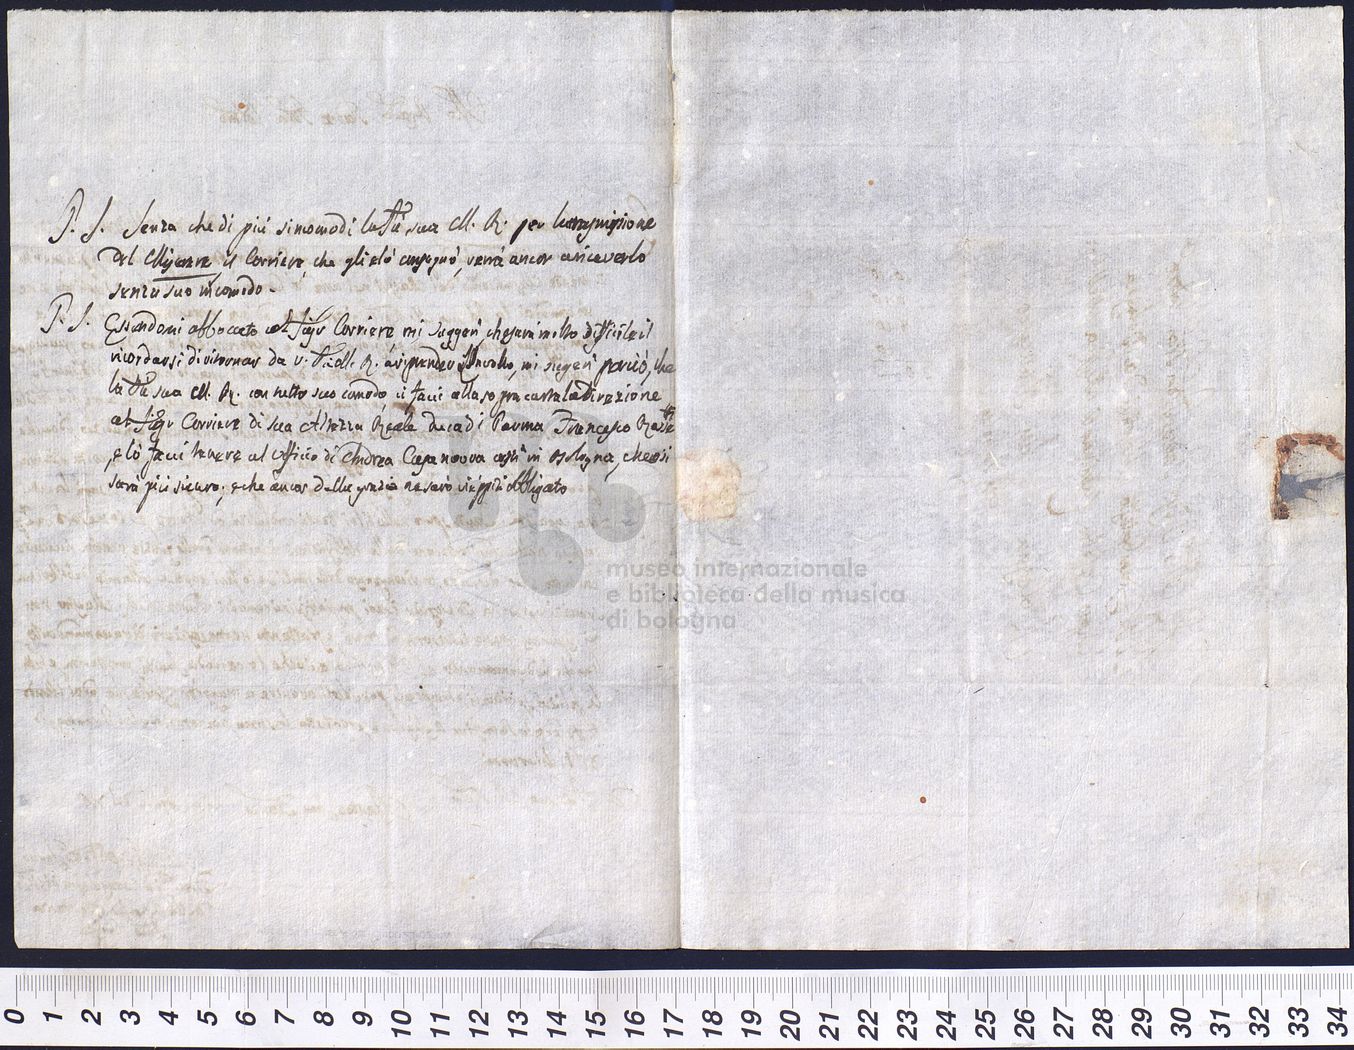 P. S. Senza che di più s'incomodi la Ptà sua M. R. per la trasmissione
del Miserere il Corriere, che gli elò consegnò, verrà ancor a riceverlo
senza suo incomodo.
P. S. Essendomi abboccato col sigr Corriere, mi suggerì, che sarà molto difficile il
ricordarsi di ritornar da V. Ptà M. R. a riprender l'Involto, mi sugerì perciò, che
la Ptà sua M. R. con tutto suo comodo ci facci alla sopracarta la Direzione
al sigr Corriere di sua Altezza Reale Duca di Parma Francesco
, e lò facci tenere al Officio di Andrea Casanova costì in Bologna, che così
sarà più sicuro; e che ancor della grazia ne sarò viè più obbligato
museo internazionale
e biblioteca della musica
di bologna
0 1 2 3 4 5 6 7 8 9 10 11 12 13 14 15 16 17 18 19 20 21 22 23 24 25 26 27 28 29 30 31 32 33 34